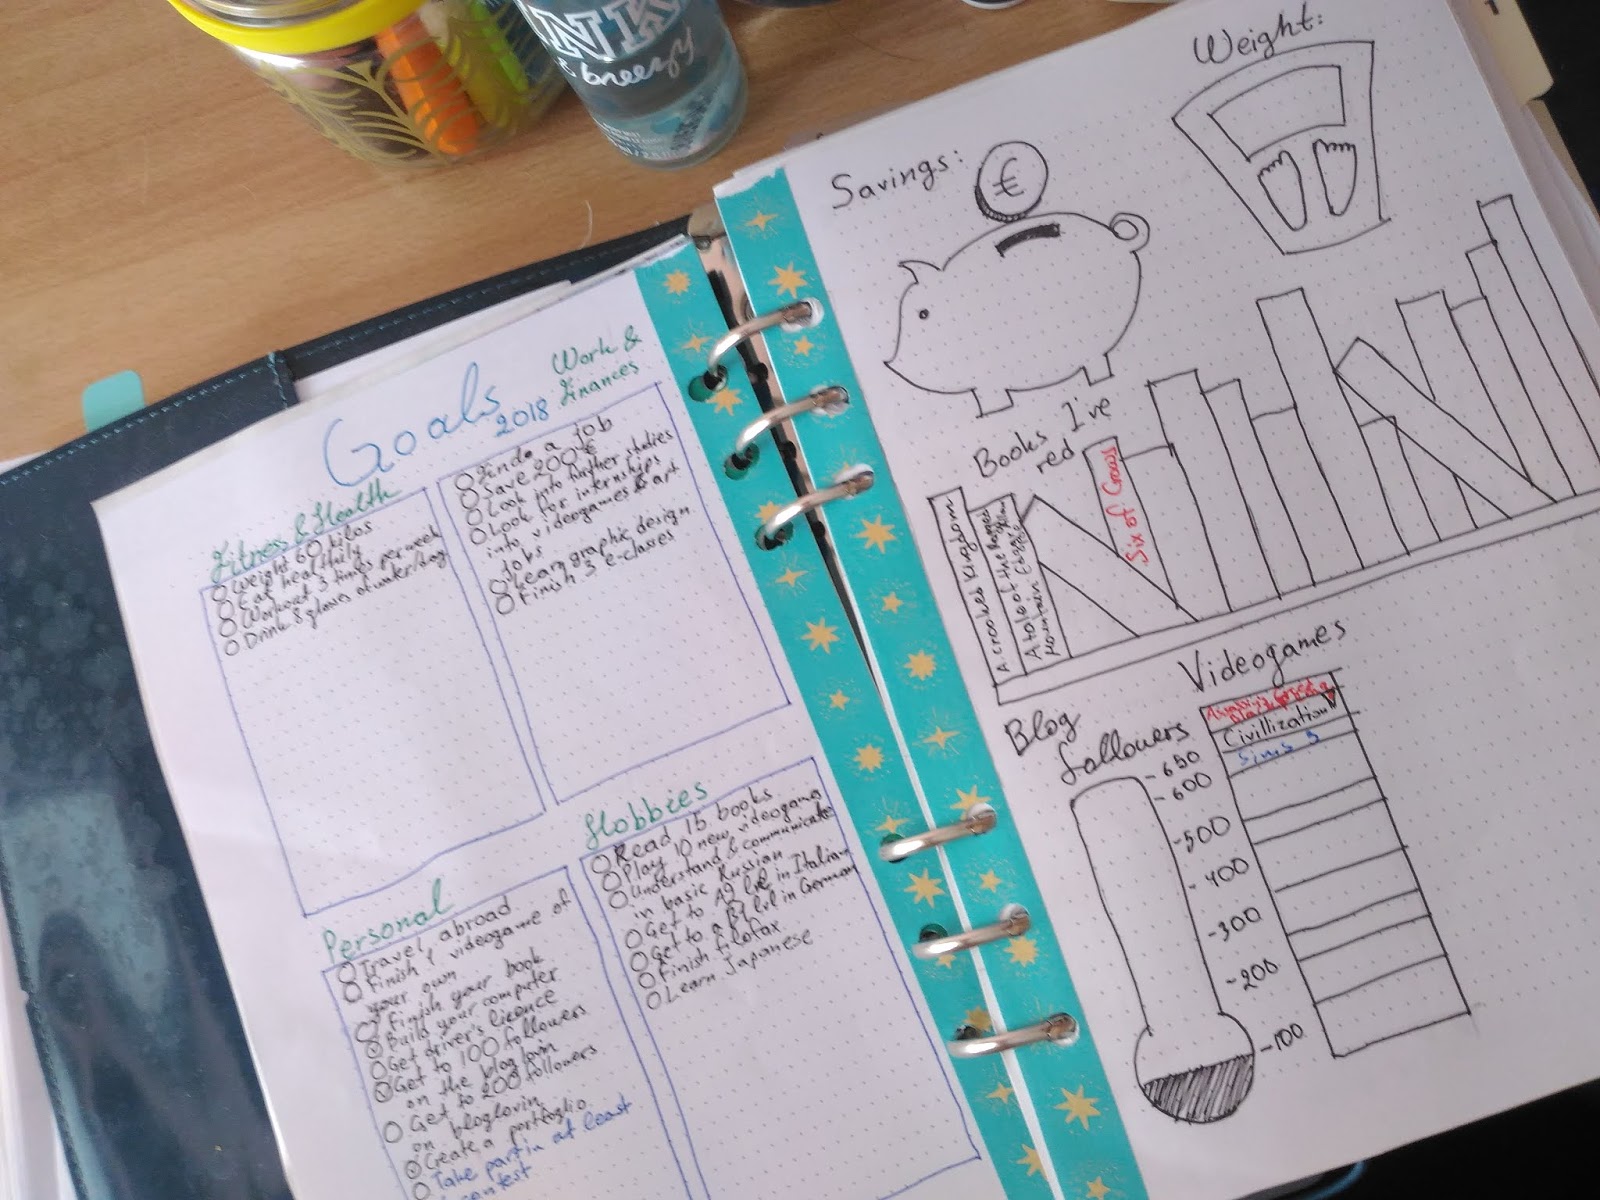 Goals
2018
Fitness & Health
Weight 60 kilos
Eat healthily
Workout 3 times per week
Drink 8 glasses of water/day
Work &
Finances
Finde a job
Save 200€
Look into further studies
Look for internships
into videogames & art
jobs
Learn graphic design
Finish 3 e-classes
Personal
Travel abroad
Finish 1 videogame of
your own
Finish your book
Build your computer
Get driver's licence
Get to 100 followers
on the bloglovin
Get to 200 followers
on bloglovin
Create a portfoglio
Take part in at least
contest
Hobbies
Read 15 books
Play 10 new videogames
Understand & communicate
in basic Russian
Get to A2 lvl in Italian
Get to a B1 lvl in German
Finish filofax
Learn Japanese
NK
breezy
Savings:
€
Weight:
Books I've
red
A crooked Kingdom
A tale of the
Mountain
Six of Crows
Blog
followers
-650
-600
-500
-400
-300
-200
-100
Videogames
Civillization V
Sims 3